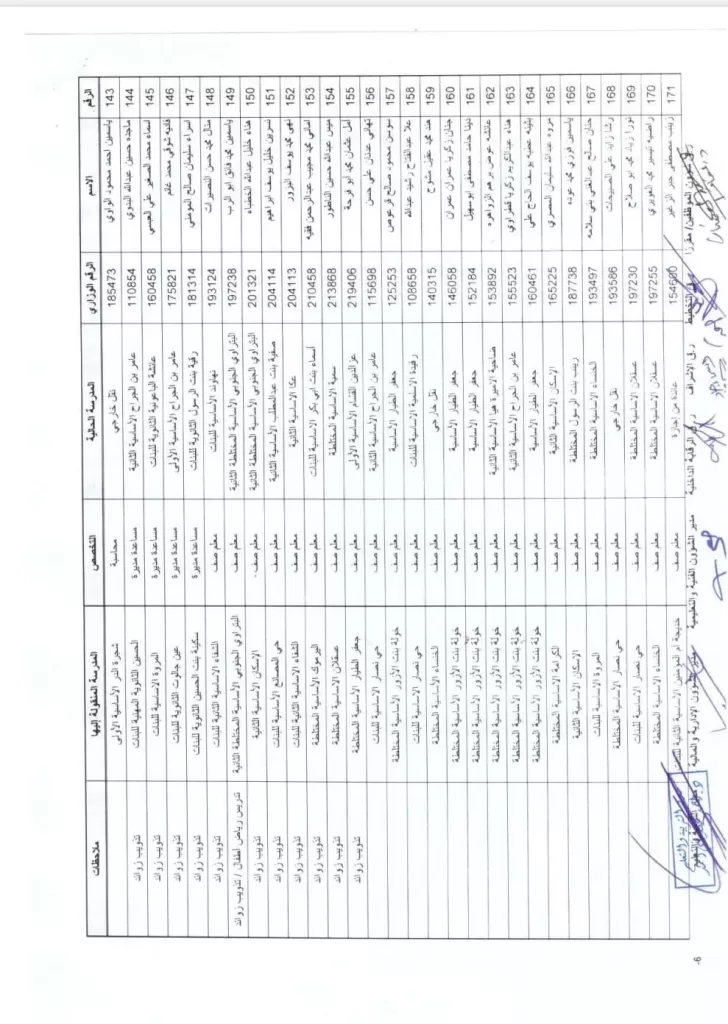 الرقم الاسم الرقم الوزاري المدرسة الحالية التخصص المدرسة المنقولة إليها ملاحظات
143 ياسمين احمد محمود الراوي 185473 نقل خارجي محاسبة شجرة الدر الأساسية الأولى
144 ماجده حسين عبدالله البدوي 110854 عامر بن الجراح الأساسية الثانية مساعدة مديرة الحسين الثانوية المهنية للبنات تذويب زوائد
145 اسماء محمد الصغير علي العيسى 160458 عائشة الباعونية الثانوية للبنات مساعدة مديرة المروة الأساسية للبنات تذويب زوائد
146 شوقي محمد غنم 175821 عامر بن الجراح الأساسية الأولى مساعدة مديرة عين جالوت الثانوية للبنات تذويب زوائد
147 اسراء سليمان صالح المومني 181314 رقية بنت الرسول الثانوية للبنات مساعدة مديرة سكينة بنت الحسين الثانوية للبنات تذويب زوائد
148 منال حسن النصيرات 193124 نهاوند الأساسية للبنات معلم صف الشفاء الأساسية الثانية للبنات تذويب زوائد
149 ياسمين فائق ابو الرب 197238 البتراوي الجنوبي الأساسية المختلطة الثانية معلم صف البتراوي الجنوبي الأساسية المختلطة الثانية تدريس رياض اطفال / تذويب زوائد
150 هناء خليل عبدالله الخطباء 201321 البتراوي الجنوبي الأساسية المختلطة الثانية معلم صف الاسكان الأساسية الثانية تذويب زوائد
151 نسرين خليل يوسف ابراهيم 204114 صفية بنت عبدالمطلب الأساسية الثانية معلم صف حي المصانع الأساسية للبنات تذويب زوائد
152 نهى يوسف البزور 204113 عكا الأساسية الثانية معلم صف الشفاء الأساسية الثانية للبنات تذويب زوائد
153 اماني مجيب عبدالرحمن فقيه 210458 اسماء بنت ابي بكر الأساسية للبنات معلم صف اليرموك الأساسية المختلطة تذويب زوائد
154 ميس عبدالله حسين الناطور 213868 سمية الأساسية المختلطة معلم صف عسقلان الأساسية المختلطة تذويب زوائد
155 امل عثمان ابو فرحة 219406 عزالدين القسام الأساسية الأولى معلم صف جعفر الطيار الأساسية تذويب زوائد
156 تهاني عدنان علي حسن 115698 عامر بن الجراح الأساسية الثانية معلم صف حي نصار الأساسية للبنات
157 سوسن محمود صالح قرعوش 125253 جعفر الطيار الأساسية معلم صف خولة بنت الأزور الأساسية المختلطة
158 علا عبدالفتاح رشيد عبدالله 108658 رفيدة الأسلمية الأساسية للبنات معلم صف حي نصار الأساسية للبنات
159 هند 140315 نقل خارجي معلم صف الخنساء الأساسية المختلطة
160 جنان زكريا عمران عمران 146058 جعفر الطيار الأساسية معلم صف خولة بنت الأزور الأساسية المختلطة
161 دينا حامد مصطفى ابو سهيل 152184 جعفر الطيار الأساسية معلم صف خولة بنت الأزور الأساسية المختلطة
162 عائشه عوض الزواهره 153892 ضاحية الاميرة هيا الأساسية الثانية معلم صف خولة بنت الأزور الأساسية المختلطة
163 هناء عبدالكريم زكريا قطراوي 155523 عامر بن الجراح الأساسية الثانية معلم صف خولة بنت الأزور الأساسية المختلطة
164 بثينه عطيه يوسف الحاج علي 160461 جعفر الطيار الأساسية معلم صف خولة بنت الأزور الأساسية المختلطة
165 مروه عبدالله سليمان المصري 165225 الاسكان الأساسية الثانية معلم صف الكرامة الأساسية المختلطة
166 ياسمين فوزي عوده 187738 زينب بنت الرسول المختلطة معلم صف الاسكان الأساسية الثانية
167 حنان صالح عبدالغني بني سلامه 193497 الخنساء الأساسية المختلطة معلم صف المروة الأساسية للبنات
168 رشا زايد علي الصبيحات 193586 نقل خارجي معلم صف حي نصار الأساسية المختلطة
169 نور زياد ابو صلاح 197230 عسقلان الأساسية المختلطة معلم صف حي نصار الأساسية للبنات
170 راضيه تيسير 197255 عسقلان الأساسية المختلطة معلم صف الخنساء الأساسية المختلطة
171 زينب مصطفى 154680 عائدة من اجازة معلم صف خديجة ام المؤمنين الأساسية الثانية للبنات
شؤون الموظفين/ مقررا
التخطيط
ر.ق الاشراف
ر.قسم الرقابة الداخلية
مدير الشؤون الفنية والتعليمية
مدير الشؤون الادارية والمالية
مدير التربية والتعليم
-6